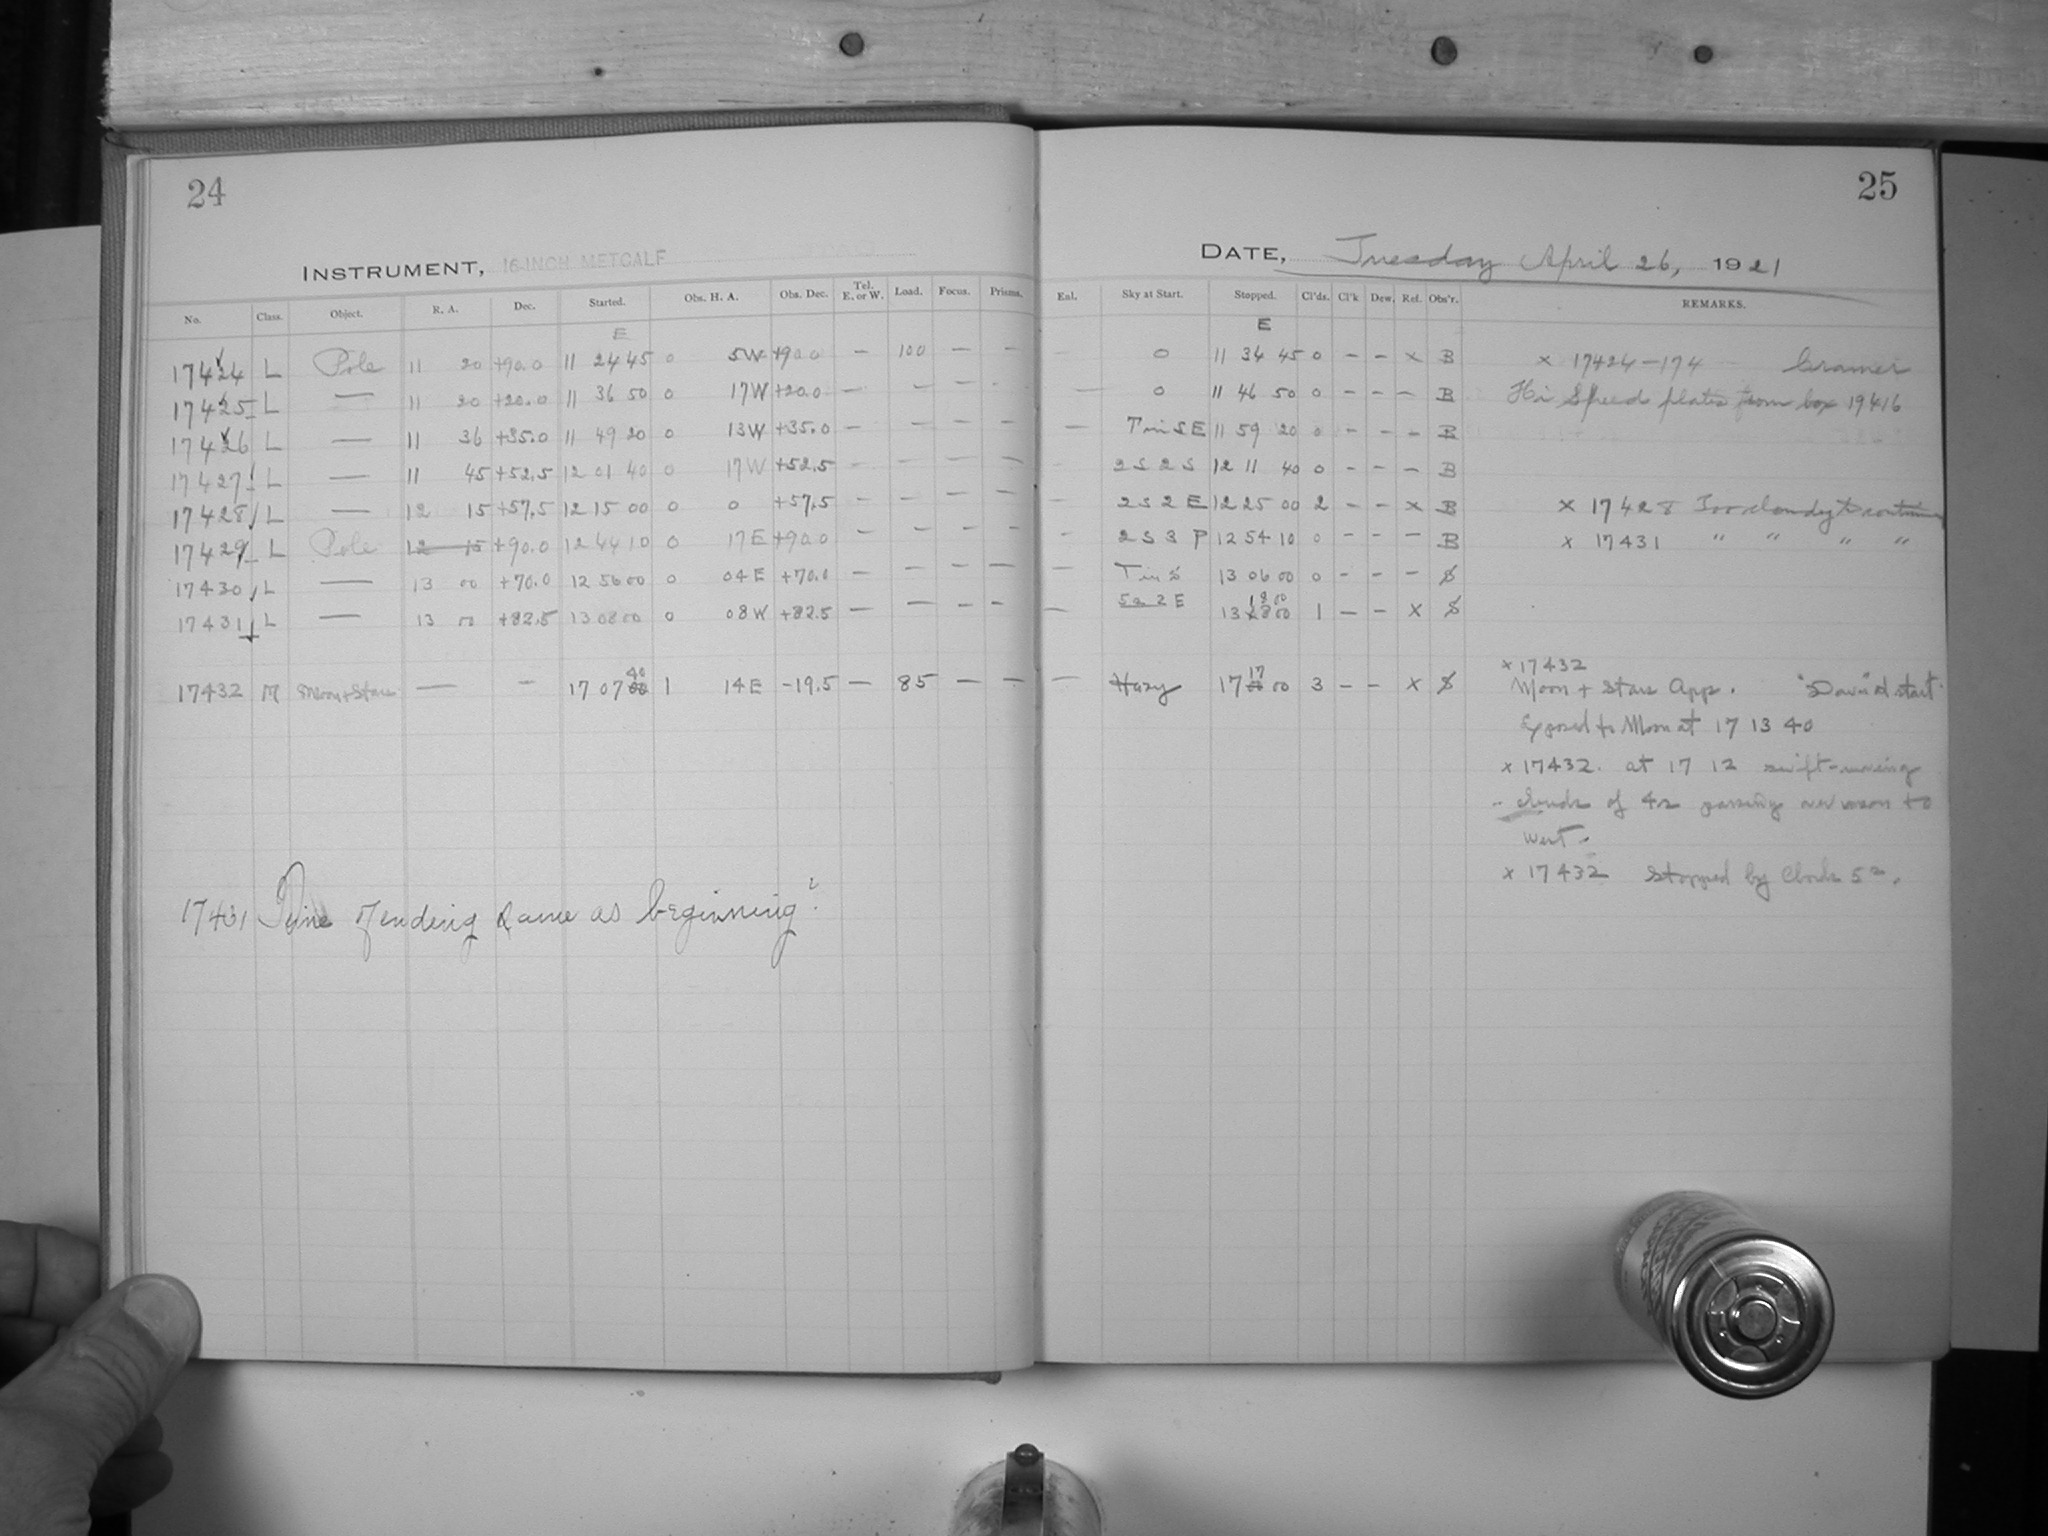 24
INSTRUMENT, 16-INCH METCALF
No. Class. Object. R. A. Dec. Started. Obs. H. A. Obs. Dec. Tel. E. or W. Load. Focus. Prisms.
E
17424 L Pole 11 20 +90.0 11 24 45 0 5W +90.0 — 100 — —
17425 L — 11 20 +20.0 11 36 50 0 17W +20.0 — — — -
17426 L — 11 36 +35.0 11 49 20 0 13W +35.0 — — — —
17427 L — 11 45 +52.5 12 01 40 0 17W +52.5 — — — —
17428 L — 12 15 +57.5 12 15 00 0 0 +57.5 — — — —
17429 L Pole 12 15 +90.0 12 44 10 0 17E +90.0 — — — —
17430 L — 13 00 +70.0 12 56 00 0 04E +70.0 — — — —
17431 L — 13 00 +82.5 13 08 00 0 08W +82.5 — — — —
17432 M Moon+Stars — — 17 07 00 40 1 14E -19.5 — 85 — —
17431 Time of ending same as beginning?
25
DATE, Tuesday April 26, 1921
Enl. Sky at Start. Stopped. Cl'ds. Cl'k Dew. Ref. Obs'r. REMARKS.
E
— 0 11 34 45 0 — — x B x 17424-174 Cramer
— 0 11 46 50 0 — — — B Hi Speed plates from box 19416
— T in S E 11 59 20 0 — — — B
— 2 S 2 S 12 11 40 0 — — — B
— 2 S 2 E 12 25 00 2 — — x B x 17428 Too cloudy to continue
— 2 S 3 P 12 54 10 0 — — — B x 17431 " " " "
— T in S 13 06 00 0 — — — S
— 2 E 13 18 00 1 — — x S
x 17432
— Hazy 17 17 00 3 — — x S Moon + Stars App. at start
Exposed to Moon at 17 13 40
x 17432. at 17 12 swift-moving
clouds of passing over moon to
West.
x 17432 Stopped by Clouds